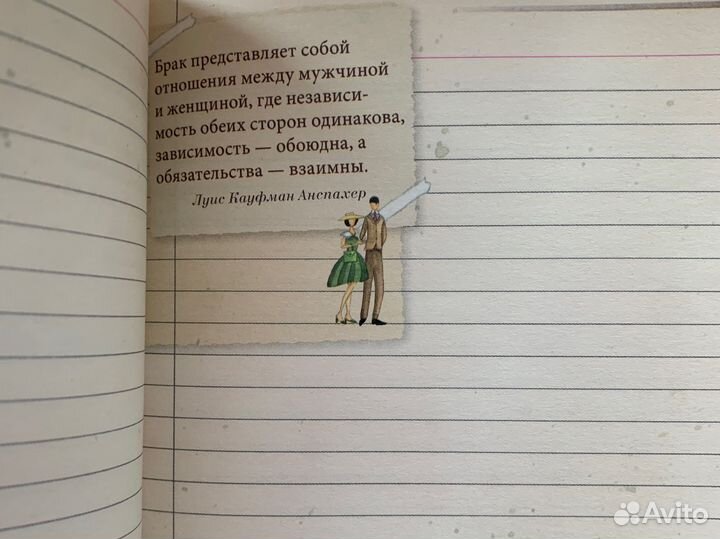 Брак представляет собой
отношения между мужчиной
и женщиной, где независи-
мость обеих сторон одинакова,
зависимость — обоюдна, а
обязательства — взаимны.
Луис Кауфман Анспахер
Avito